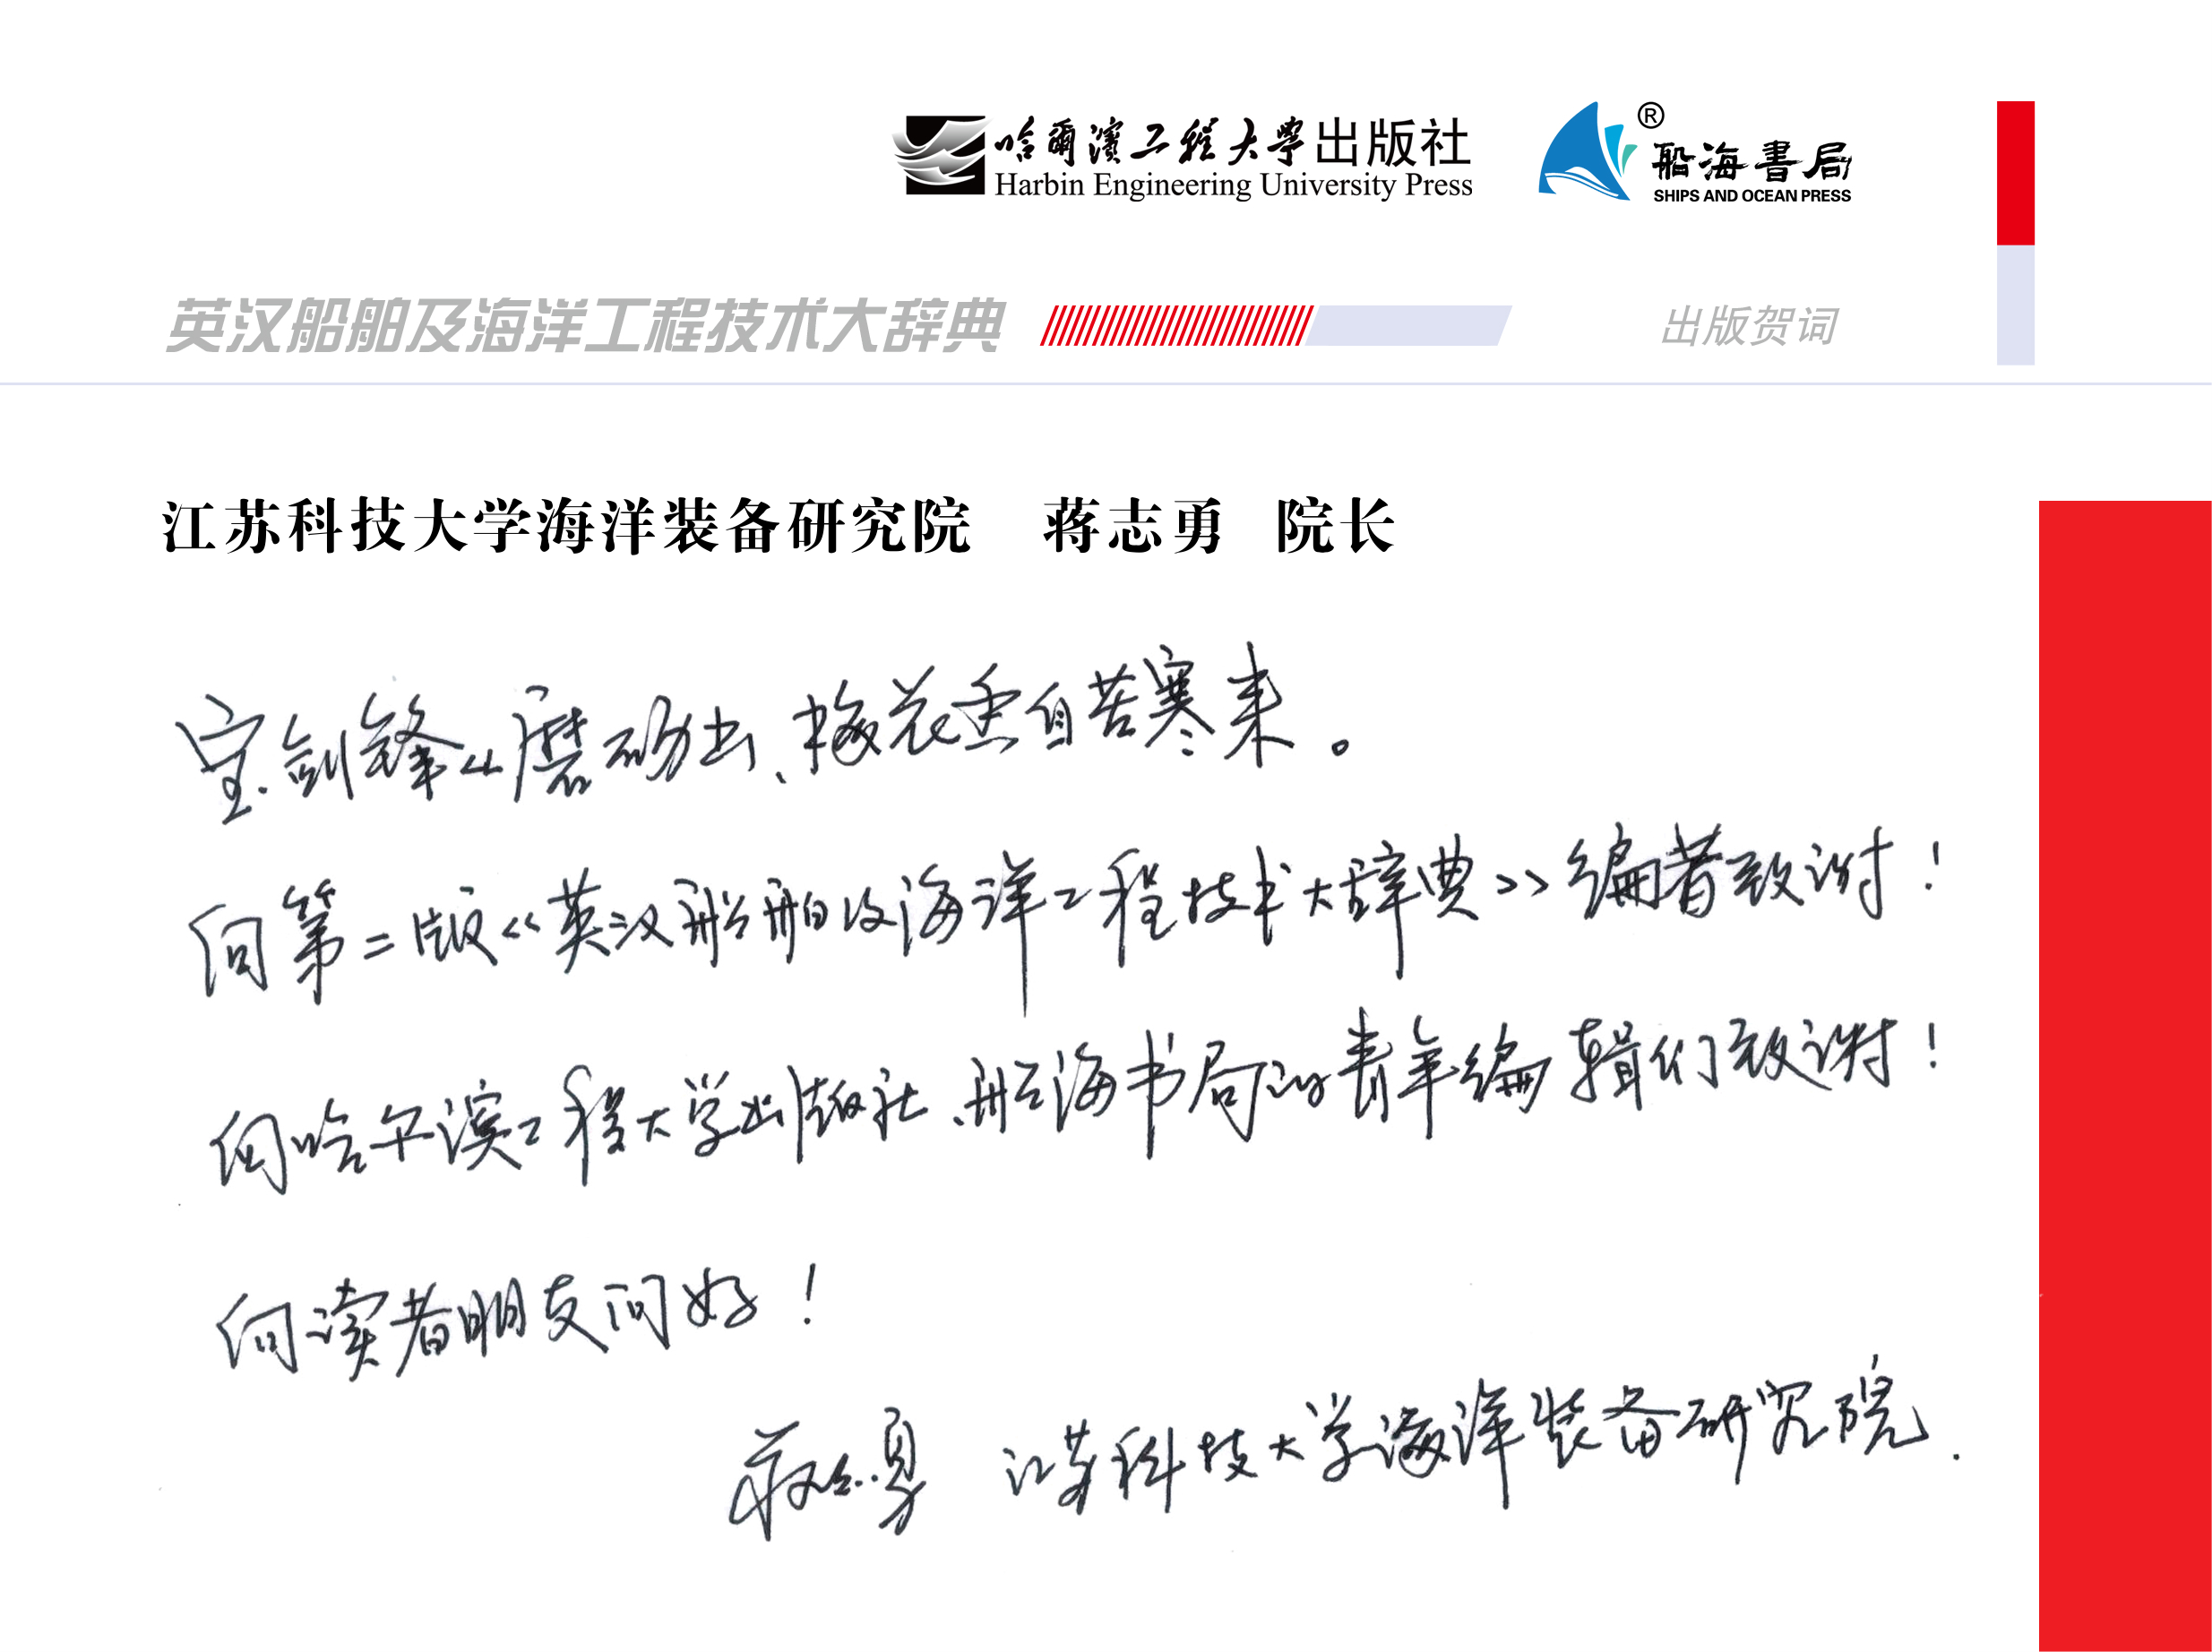 哈爾濱工程大學出版社
Harbin Engineering University Press
®
船海書局
SHIPS AND OCEAN PRESS
英汉船舶及海洋工程技术大辞典
出版贺词
江苏科技大学海洋装备研究院 蒋志勇 院长
宝剑锋从磨砺出、梅花香自苦寒来。
向第二版《英汉船舶及海洋工程技术大辞典》编著致谢！
向哈尔滨工程大学出版社、船海书局的青年编辑们致谢！
向读者朋友问好！
蒋志勇 江苏科技大学海洋装备研究院.